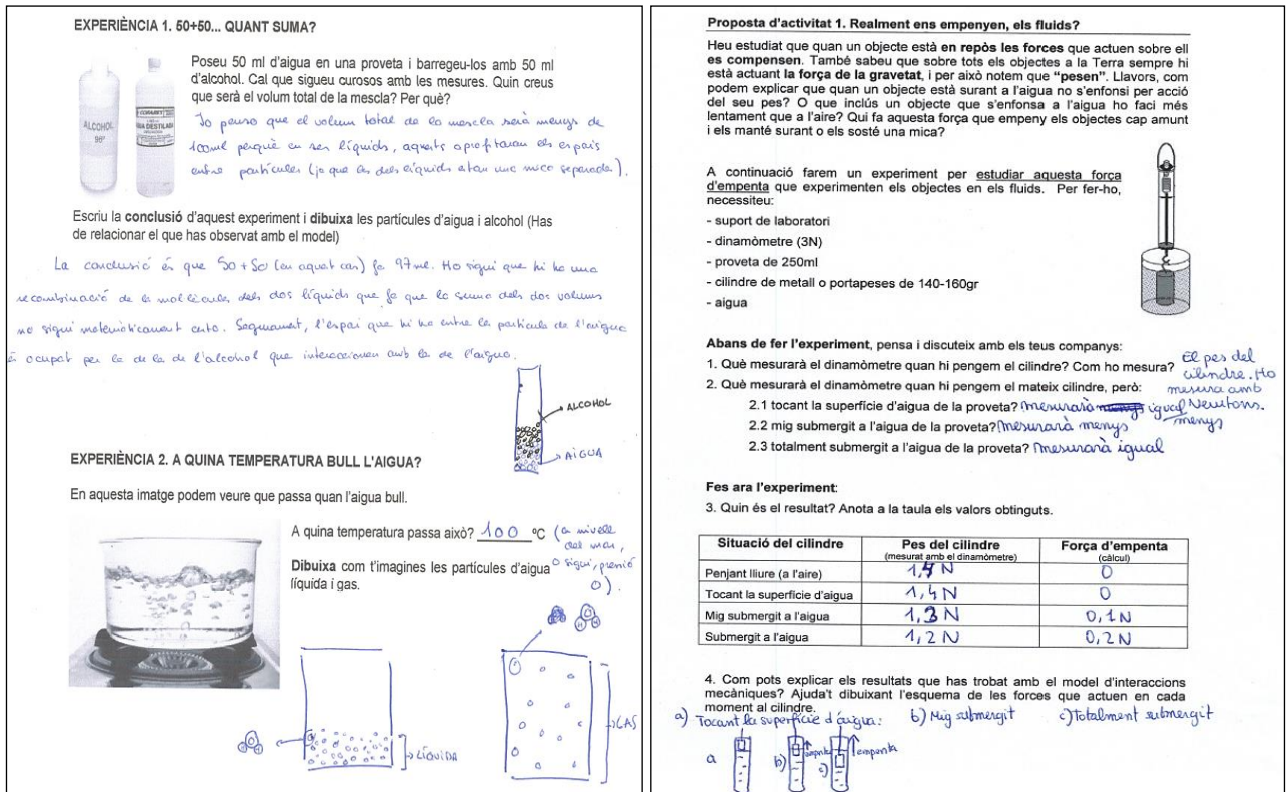 EXPERIÈNCIA 1. 50+50... QUANT SUMA?
Poseu 50 ml d'aigua en una proveta i barregeu-los amb 50 ml
d'alcohol. Cal que sigueu curosos amb les mesures. Quin creus
que serà el volum total de la mescla? Per què?
ALCOHOL
96º
Jo penso que el volum total de la mescla serà menys de
100ml perquè en ser líquids, aquests aprofitaran els espais
entre partícules (ja que les dels líquids estan una mica separades).
Escriu la conclusió d'aquest experiment i dibuixa les partícules d'aigua i alcohol (Has
de relacionar el que has observat amb el model)
La conclusió és que 50+50 (en aquest cas) fa 97ml. Ho sigui que hi ha una
recombinació de les molècules dels dos líquids que fa que la suma dels dos volums
no sigui matemàticament certa. Segurament, l'espai que hi ha entre les partícules de l'aigua
és ocupat per les de la de l'alcohol que interaccionen amb les de l'aigua.
ALCOHOL
AIGUA
EXPERIÈNCIA 2. A QUINA TEMPERATURA BULL L'AIGUA?
En aquesta imatge podem veure que passa quan l'aigua bull.
A quina temperatura passa això? 100 ºC (a nivell
del mar,
o sigui, pressió
0).
Dibuixa com t'imagines les partícules d'aigua
líquida i gas.
LÍQUIDA
GAS
Proposta d'activitat 1. Realment ens empenyen, els fluids?
Heu estudiat que quan un objecte està en repòs les forces que actuen sobre ell
es compensen. També sabeu que sobre tots els objectes a la Terra sempre hi
està actuant la força de la gravetat, i per això notem que "pesen". Llavors, com
podem explicar que quan un objecte està surant a l'aigua no s'enfonsi per acció
del seu pes? O que inclús un objecte que s'enfonsa a l'aigua ho faci més
lentament que a l'aire? Qui fa aquesta força que empeny els objectes cap amunt
i els manté surant o els sosté una mica?
A continuació farem un experiment per estudiar aquesta força
d'empenta que experimenten els objectes en els fluids. Per fer-ho,
necessiteu:
- suport de laboratori
- dinamòmetre (3N)
- proveta de 250ml
- cilindre de metall o portapeses de 140-160gr
- aigua
Abans de fer l'experiment, pensa i discuteix amb els teus companys:
1. Què mesurarà el dinamòmetre quan hi pengem el cilindre? Com ho mesura? El pes del
cilindre. Ho
mesura amb
Newtons.
2. Què mesurarà el dinamòmetre quan hi pengem el mateix cilindre, però:
2.1 tocant la superfície d'aigua de la proveta? Mesurarà menys igual
2.2 mig submergit a l'aigua de la proveta? Mesurarà menys menys
2.3 totalment submergit a l'aigua de la proveta? Mesurarà igual
Fes ara l'experiment:
3. Quin és el resultat? Anota a la taula els valors obtinguts.
Situació del cilindre Pes del cilindre Força d'empenta
(mesurat amb el dinamòmetre) (càlcul)
Penjant lliure (a l'aire) 1,4 N 0
Tocant la superfície d'aigua 1,4 N 0
Mig submergit a l'aigua 1,3 N 0,1 N
Submergit a l'aigua 1,2 N 0,2 N
4. Com pots explicar els resultats que has trobat amb el model d'interaccions
mecàniques? Ajuda't dibuixant l'esquema de les forces que actuen en cada
moment al cilindre.
a) Tocant la superfície d'aigua: b) Mig submergit c) Totalment submergit
a b) empenta c) empenta